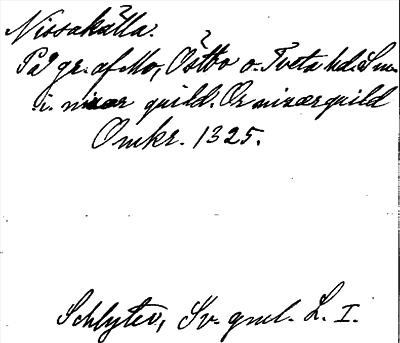 Nissakälla.
På gr. af Mo, Östbo o. Tveta hd. Sm.
i. nisær quild. Or nisærquild
Omkr. 1325.
Schlyter, Sv. gml. L. I.